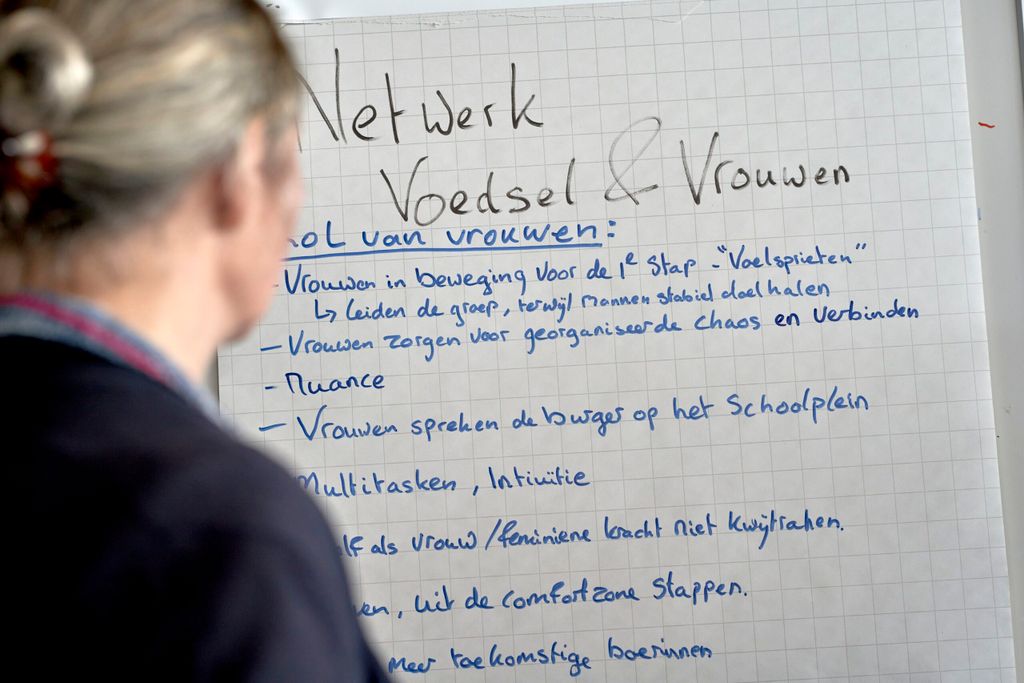 Netwerk
Voedsel & Vrouwen
van vrouwen:
- Vrouwen in beweging voor de 1e stap - "Voelsprieten"
↳ leiden de groep, terwijl mannen stabiel doel halen
- Vrouwen zorgen voor georganiseerde chaos en verbinden
- Nuance
- Vrouwen spreken de burger op het Schoolplein
Multitasken, Intuïtie
als vrouw/feminiene kracht niet kwijtraken.
, uit de comfortzone stappen.
Meer toekomstige boerinnen